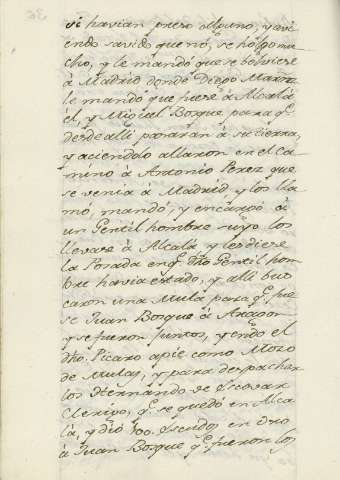 si havian preso alguno, y avi
endo savido que nó, se holgo mu
cho, y le mandó que se bolviese
á Madrid donde Diego Martz
le mandó que fuese á Alcalá
el, y Miguel Bosque para q.e
desde alli pasaran á su tierra,
y aciendolo allaron en el ca
mino á Antonio Perez que
se venia á Madrid y los lla
mó, mandó, y encargó á
un Gentil hombre suyo los
llevase á Alcalá y les diese
la Posada en q.e dho Gentil hom
bre havia estado, y alli bus
caron una Mula para q.e fue
se Juan Bosque á Aragon
y se fueron juntos, yendo el
dho. Picaro apie como Mozo
de Mulas, y para despachar
los Hernando de Escovar
Clerigo, q.e se quedó en Alca
lá, y dió 500. Escudos en Oro
á Juan Bosque q.e fueron los